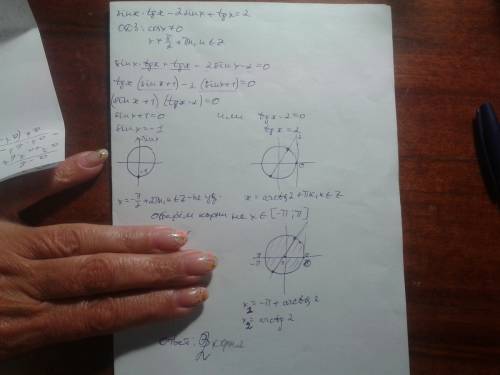 sinx·tgx − 2sinx + tgx = 2
ОДЗ: cosx≠0
x ≠ π/2 + πn, n∈Z
sinx·tgx + tgx − 2sinx − 2 = 0
tgx (sinx+1) − 2 (sinx+1) = 0
(sinx+1) (tgx−2) = 0
sinx+1=0 или tgx−2=0
sinx=−1 tgx=2
x=−π/2+2πn, n∈Z – не уд. x = arctg2 + πn, n∈Z
Отберём корни на x∈[−π; π]
−π
x₁ = −π + arctg 2
x₂ = arctg 2
Ответ: 2 корня